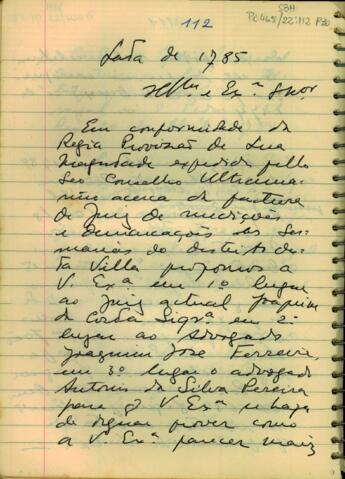 112
SBH
Pc465/22:112 P20
Data de 1785
Illmo e Exº Snor.
Em conformidade da
Regia Provozão de Sua
Magestade expedida pello
Seo Conselho Ultrama-
rino acerca da factura
de Juiz de medições
e demarcações das Ses-
marias do districto des-
ta Villa propomos a
V. Exª em 1º lugar
ao Juiz actual Joaquim
da Costa Siqrª em 2º
lugar ao Advogado
Joaquim Jose Ferreira,
em 3º lugar o advogado
Antonio da Silva Pereira
para q V. Exª se haja
de dignar prover como
a V. Exª parecer mais